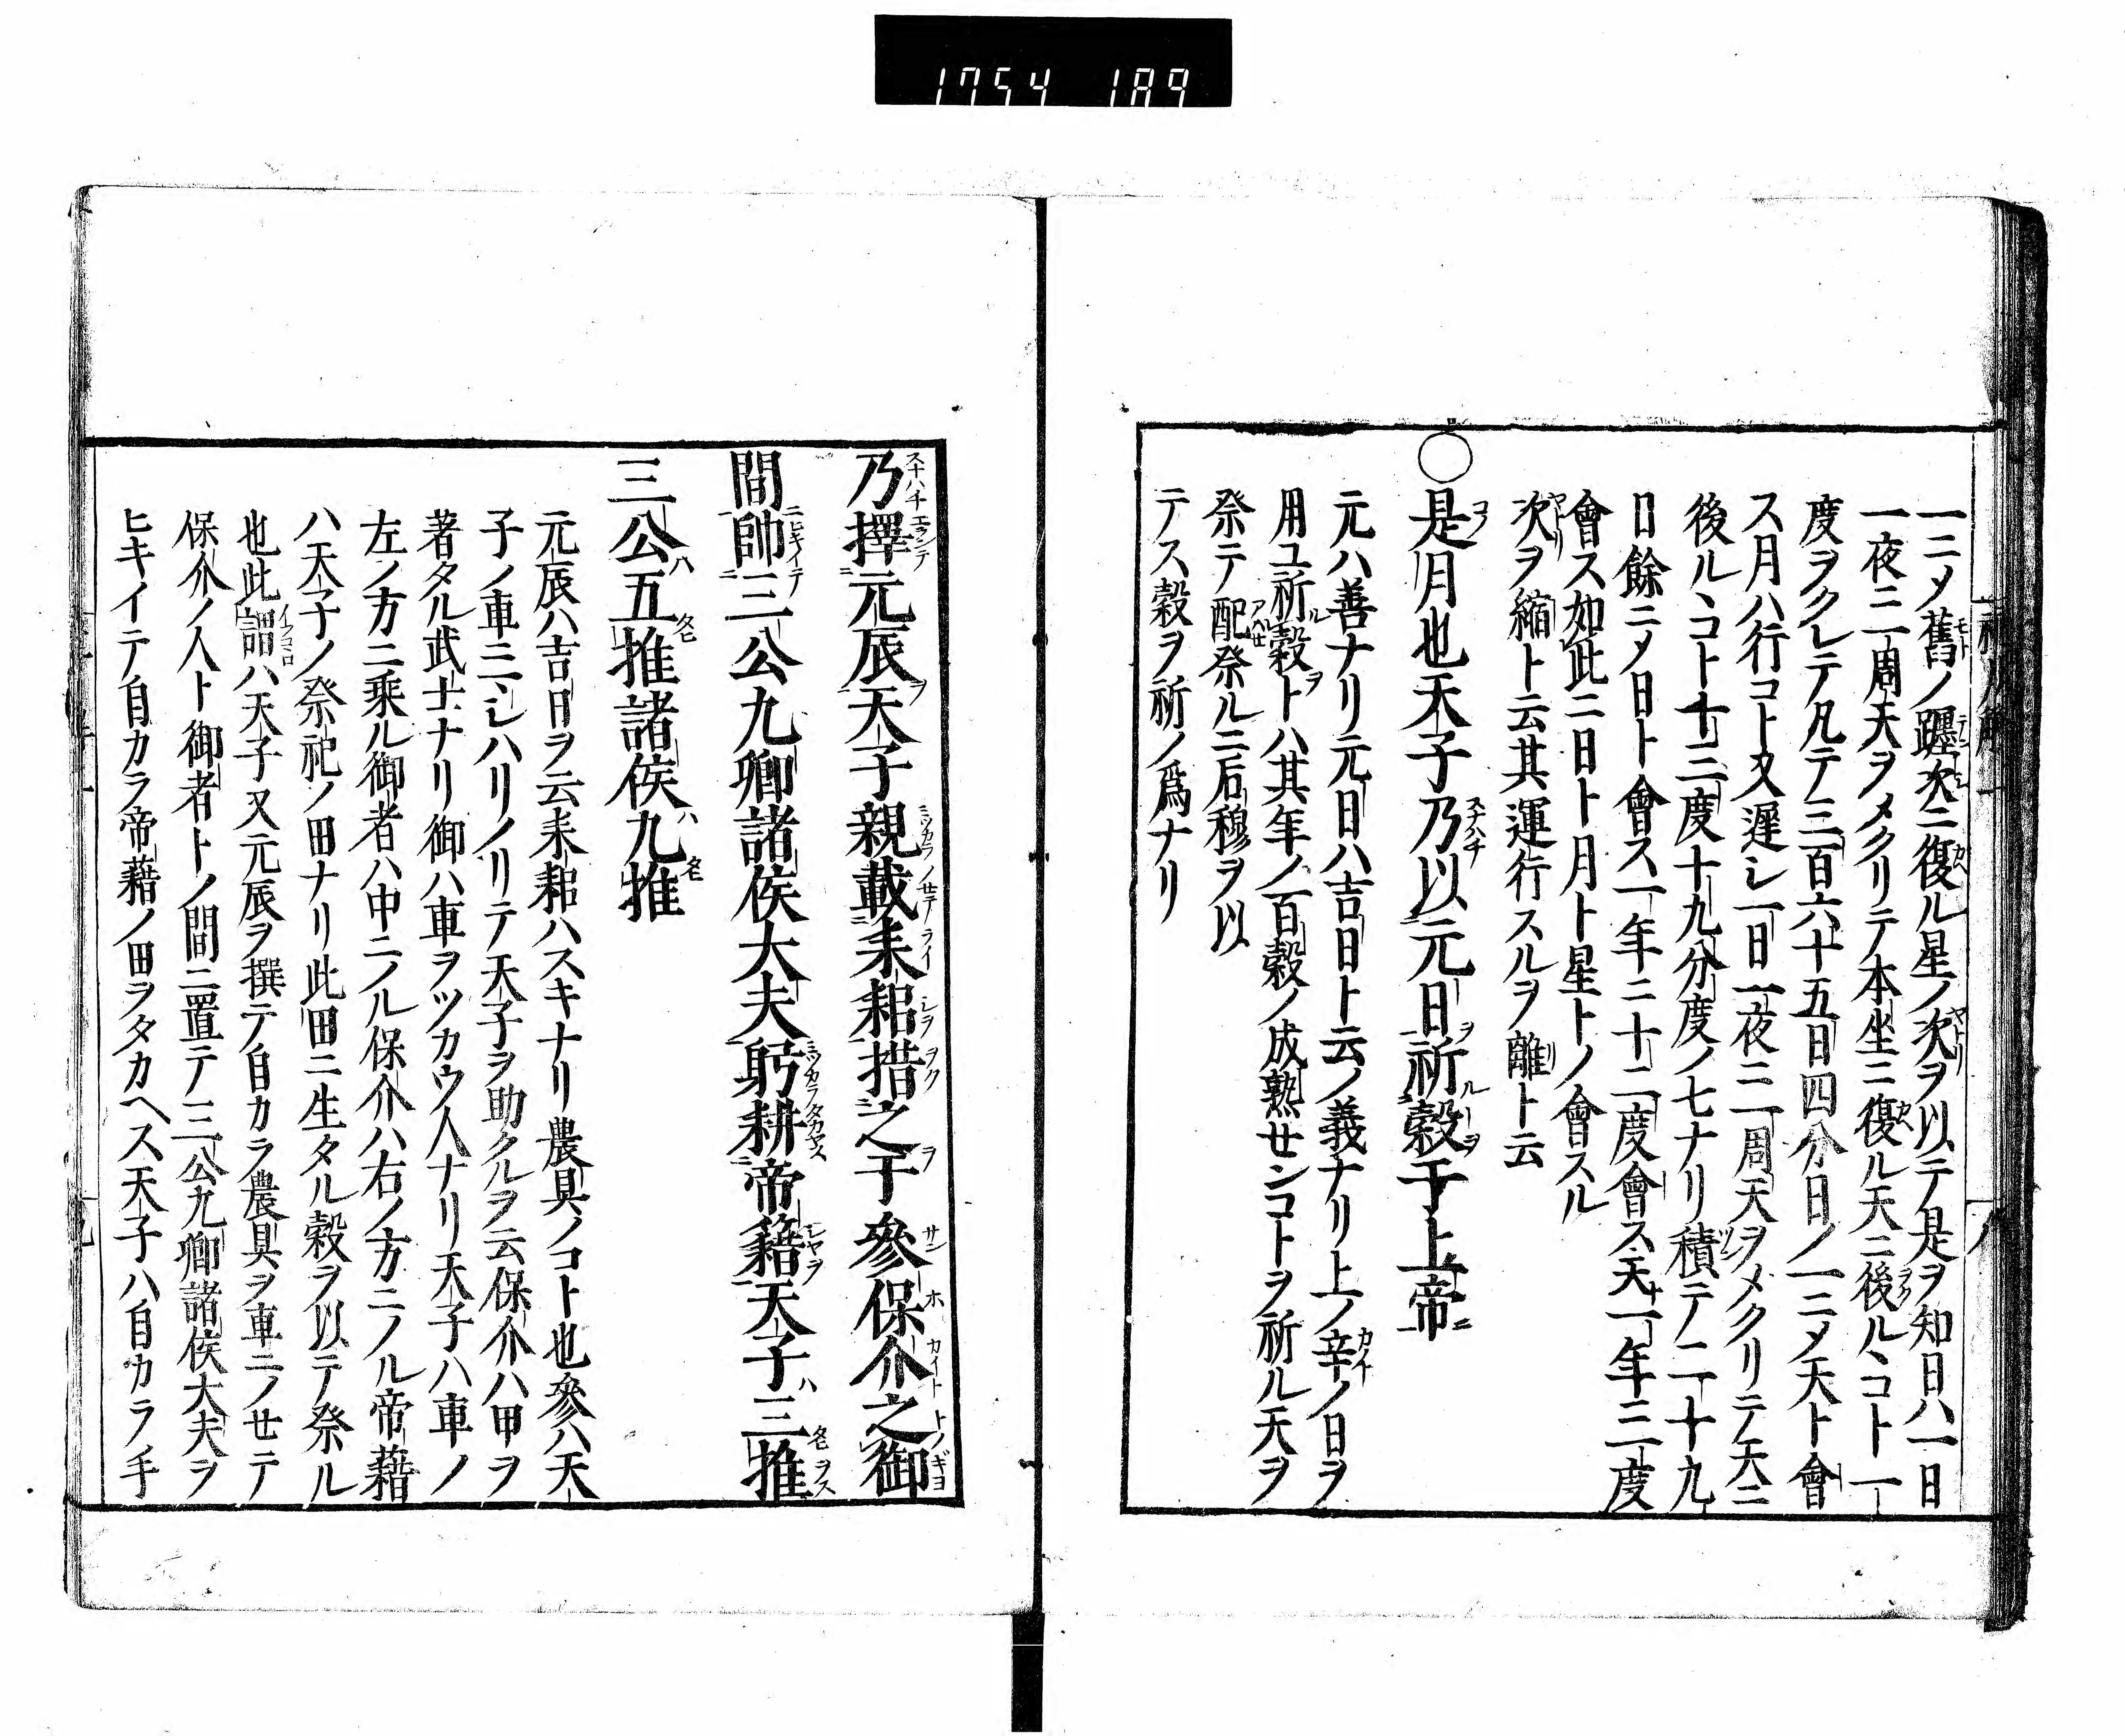 1754 189
一ニメ舊ノ躔次ニ復ル星ノ次ヲ以テ是ヲ知日ハ一日
一夜ニ一周天ヲメクリテ本坐ニ復ル天ニ後ルヽコト一
度ヲクレテ凡テ三百六十五日四分日ノ一ニメ天ト會
ス月ハ行コト又遲シ一日一夜ニ一周天ヲメクリテ天ニ
後ルヽコト十三度十九分度ノ七ナリ積テ二十九
日餘ニメ日ト會ス一年ニ十二度會ス天ト一年ニ一度
會ス如此ニ日ト月ト星トノ會スル
次ヲ縮ト云其運行スルヲ離ト云
○是月也天子乃以元日祈穀于上帝
元ハ善ナリ元日ハ吉日ト云ノ義ナリ上ノ辛ノ日ヲ
用ユ祈穀トハ其年ノ百穀ノ成熟センコトヲ祈ル天ヲ
祭テ配祭ルニ后稷ヲ以
テス穀ヲ祈ノ爲ナリ
乃擇元辰天子親載耒耜措之于參保介之御
間帥三公九卿諸侯大夫躬耕帝籍天子三推
三公五推諸侯九推
元辰ハ吉日ヲ云耒耜ハスキナリ農具ノコト也參ハ天
子ノ車ニシハリノリテ天子ヲ助クルヲ云保介ハ甲ヲ
著タル武士ナリ御ハ車ヲツカウ人ナリ天子ハ車ノ
左ノ方ニ乘ル御者ハ中ニノル保介ハ右ノ方ニノル帝藉
ハ天子ノ祭祀ノ田ナリ此田ニ生タル穀ヲ以テ祭ル
也此謂ハ天子又元辰ヲ撰テ自カラ農具ヲ車ニノセテ
保介ノ人ト御者トノ間ニ置テ三公九卿諸侯大夫ヲ
ヒキイテ自カラ帝藉ノ田ヲタカヘス天子ハ自カラ手